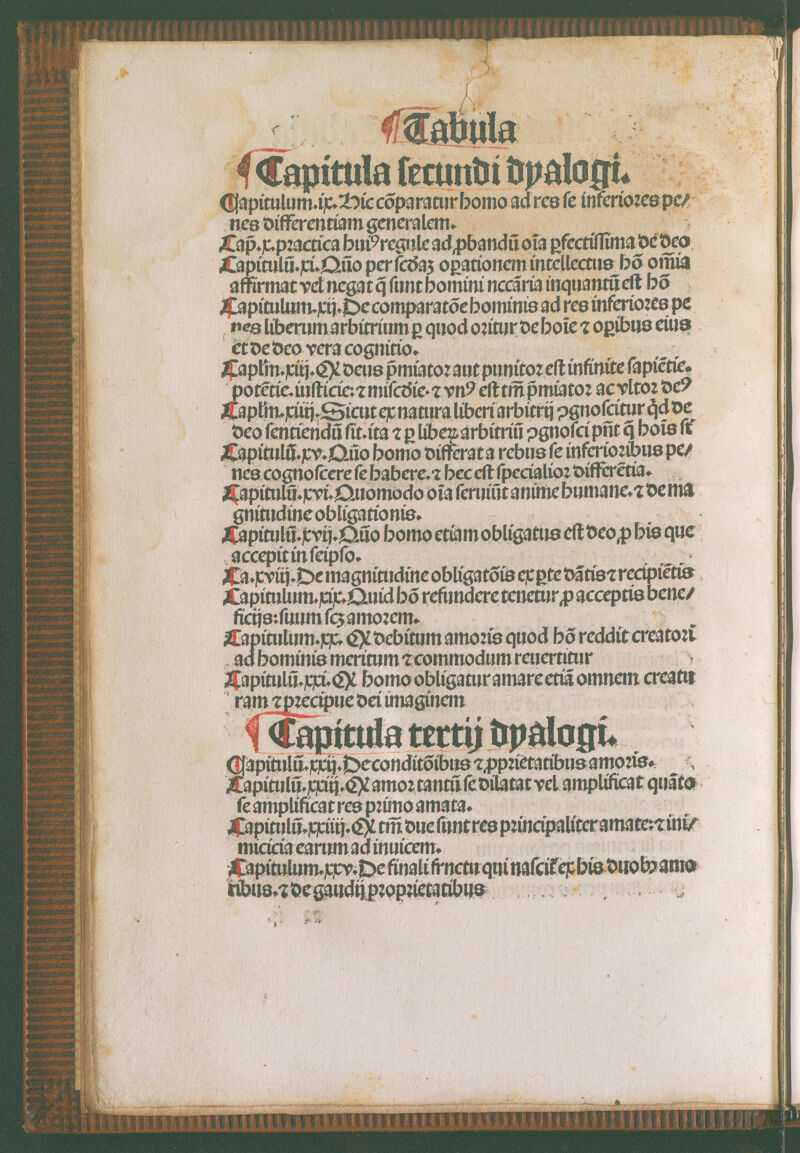 ¶ Tabula
¶ Capitula secundi dyalogi.
Capitulum.ix. Hic cōparatur homo ad res se inferiores pe/
nes differentiam generalem.
Cap̄.x.practica huiꝰ regule ad ꝓbandū oīa ꝑfectissima de deo
Capitulū.xi. Quō per scďaꝫ oꝑationem intellectus hō om̄ia
affirmat vel negat q̄ sunt homini nccāria inquantū est hō
Capitulum.xij. De comparatōe hominis ad res inferiores pe
nes liberum arbitrium ꝑ quod oritur de hoīe ⁊ oꝑibus eius
et de deo vera cognitio.
Caplm̄.xiij. Ꝙ deus p̄miator aut punitor est infinite sapiētie.
potētie. iusticie: ⁊ miscďie. ⁊ vnꝰ est tm̄ p̄miator ac vltor deꝰ
Caplm̄.xiiij. Sicut ex natura liberi arbitrij ꝯgnoscitur qd̓ de
deo sentiendū sit. ita ⁊ ꝑ liberꝝ arbitriū ꝯgnosci pn̄t q̄ hoīs st̄
Capitulū.xv. Quō homo differat a rebus se inferioribus pe/
nes cognoscere se habere. ⁊ hec est specialior differētia.
Capitulū.xvi. Quomodo oīa seruiūt anime humane. ⁊ de ma
gnitudine obligationis.
Capitulū.xvij. Quō homo etiam obligatus est deo ꝓ his que
accepit in seipso.
Ca.xviij. De magnitudine obligatōis ex ꝑte dātis ⁊ recipiētis
Capitulum.xix. Quid hō refundere tenetur ꝓ acceptis bene/
ficijs: suum scꝫ amorem.
Capitulum.xx. Ꝙ debitum amoris quod hō reddit creatori
ad hominis meritum ⁊ commodum reuertitur
Capitulū.xxi. Ꝙ homo obligatur amare etiā omnem creatu
ram ⁊ precipue dei imaginem
¶ Capitula tertij dyalogi.
Capitulū.xxij. De conditōibus ⁊ ꝓprietatibus amoris.
Capitulū.xxiij. Ꝙ amor tantū se dilatat vel amplificat quāto
se amplificat res primo amata.
Capitulū.xxiiij. Ꝙ tm̄ due sunt res principaliter amate: ⁊ ini/
micicia earum ad inuicem.
Capitulum.xxv. De finali frnctu qui nascit᷑ ex his duobꝫ amo
ribus. ⁊ de gaudij proprietatibus